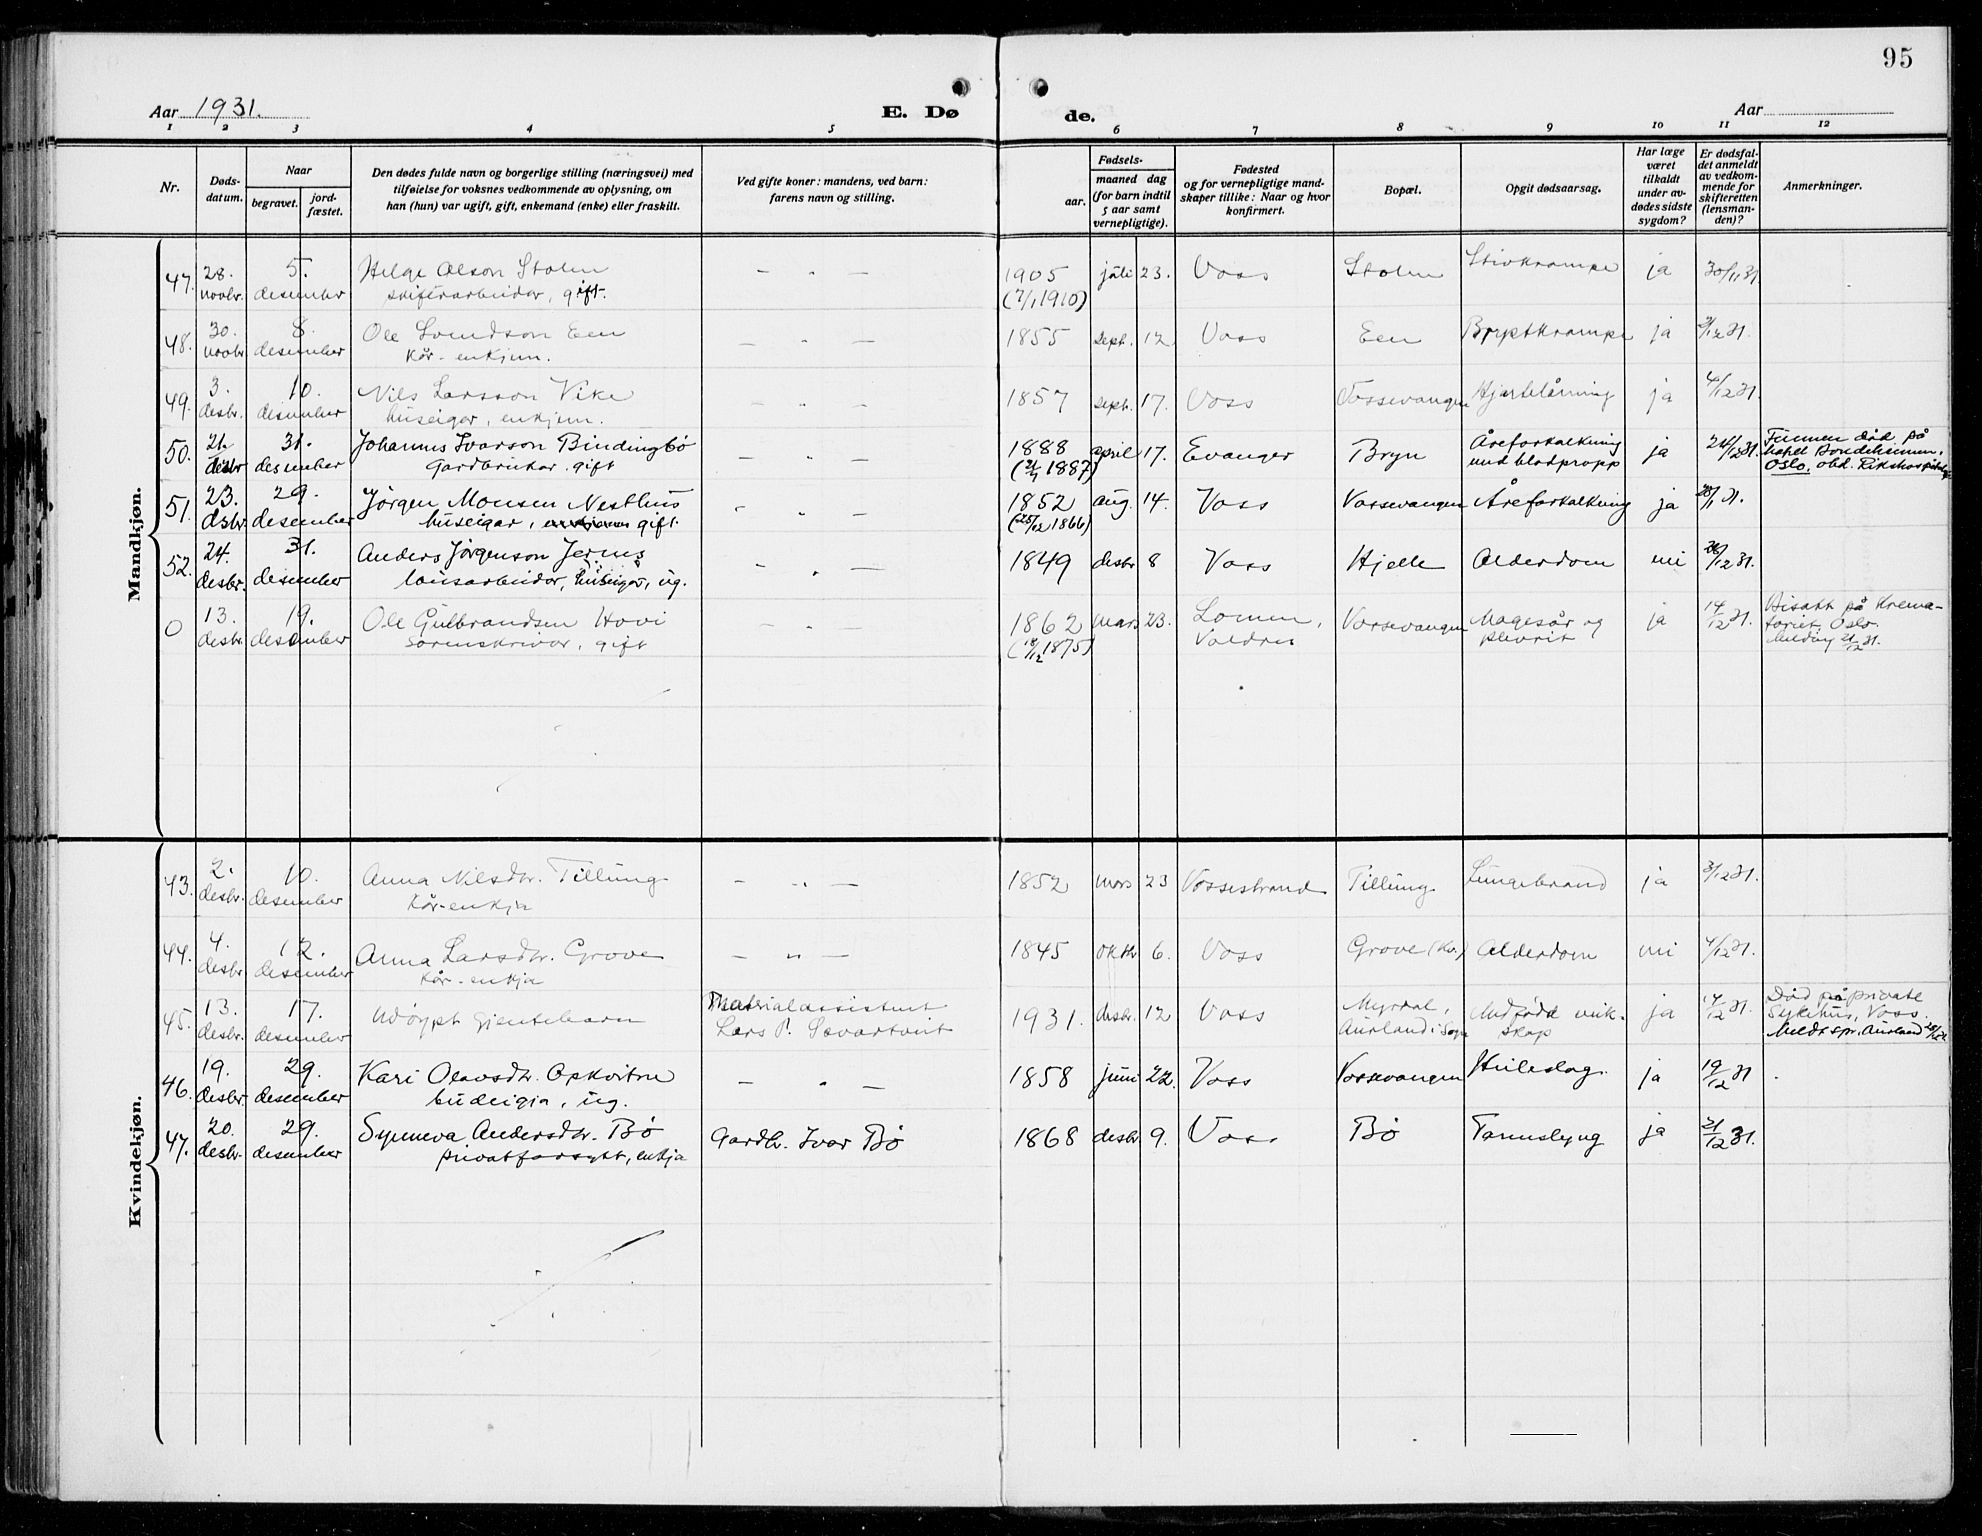 95
Aar 1931.
E. Dø
de.
Aar
1 2 3 4 5 6 7 8 9 10 11 12
Nr.
Døds-
datum.
Naar
begravet.
jord-
fæstet.
Den dødes fulde navn og borgerlige stilling (næringsvei) med
tilføielse for voksnes vedkommende av oplysning, om
han (hun) var ugift, gift, enkemand (enke) eller fraskilt.
Ved gifte koner: mandens, ved barn:
farens navn og stilling.
Fødsels-
aar.
maaned dag
(for barn indtil
5 aar samt
vernepligtige).
Fødested
og for vernepligtige mand-
skaper tillike: Naar og hvor
konfirmert.
Bopæl.
Opgit dødsaarsag.
Har læge
været
tilkaldt
under av-
dødes sidste
sygdom?
Er dødsfal-
det anmeldt
av vedkom-
mende for
skifteretten
(lensman-
den)?
Anmerkninger.
Mandkjøn.
47. 28. 5. Helge Olson Stolen - " - 1905 juli 23. Voss Stolen Stivkrampe ja 30/11 31
novbr. desember skiferarbeider, gift. (7/1 1910)
48. 30. 8. Ole Svendson Een - " - 1855 sept. 12. Voss Een Brystkrampe ja 2/12 31.
novbr desember Kår-enkjem.
49. 3. 10. Nils Larsson Vike - " - 1857 sept. 17. Voss Vossevangen Hjartelåming ja 4/12 31.
desbr. desember huseigar, enkjem.
50. 21. 31. Johannes Ivarson Bindingbø - " - 1888 april 17. Evanger Bryn Åreforkalkning ja 24/12 31. Funnen død på
desbr desember Gardbrukar, gift (2/1 1887) med blodpropp hotel Bondeheimen,
Oslo, obd. Rikshospitalet
51. 23. 29. Jørgen Monsen Nesthus - " - 1852 aug. 14. Voss Vossevangen Åreforkalkning ja
desbr. desember huseigar, gift. (25/12 1866)
52. 24. 31. Anders Jørgenson Jernes - " - 1849 desbr 8 Voss Hjelle Alderdom nei
desbr. desember lausarbeidar, huseigar, ug.
0 13. 19. Ole Gulbrandsen Hovi - " - 1862 mars 23. Lomen, Vossevangen Magesår og ja 14/12 31. Bisatt på Krema-
desbr. desember Sorenskrivar, gift (12 1875) Valdres plevrit toriet, Oslo.
Melding 21/12 31.
Kvindekjøn.
43. 2. 10. Anna Nilsdtr. Tillung - " - 1852 mars 23 Vossestrand Tillung Lungebrand ja 3/12 31.
desbr. desember Kår-enkja
44. 4. 12. Anna Larsdtr. Grove - " - 1845 oktbr 6. Voss Grove (Kv.) Alderdom nei 4/12 31.
desbr. desember Kår-enkja
45. 13. 17. Udøypt gjentebarn Materialassistent 1931. desbr. 12 Voss Myrdal, Medfødd veik- ja 14/12 31. Død på private
desbr. desember Lars P. Aurland i Sogn skap Sykehus, Voss.
Meldt spr. Aurland
46. 19. 29. Kari Olavsdtr. Opkvitne - " - 1858 juni 22. Voss Vossevangen Heileslag. ja 19/12 31
desbr. desember budeigja, ug.
47. 20. 29. Synneva Andersdtr. Bø Gardbr. Ivar Bø 1868 desbr. 9. Voss Bø Tarmslyng ja 21/12 31.
desbr. desember privatforsytt, enkja